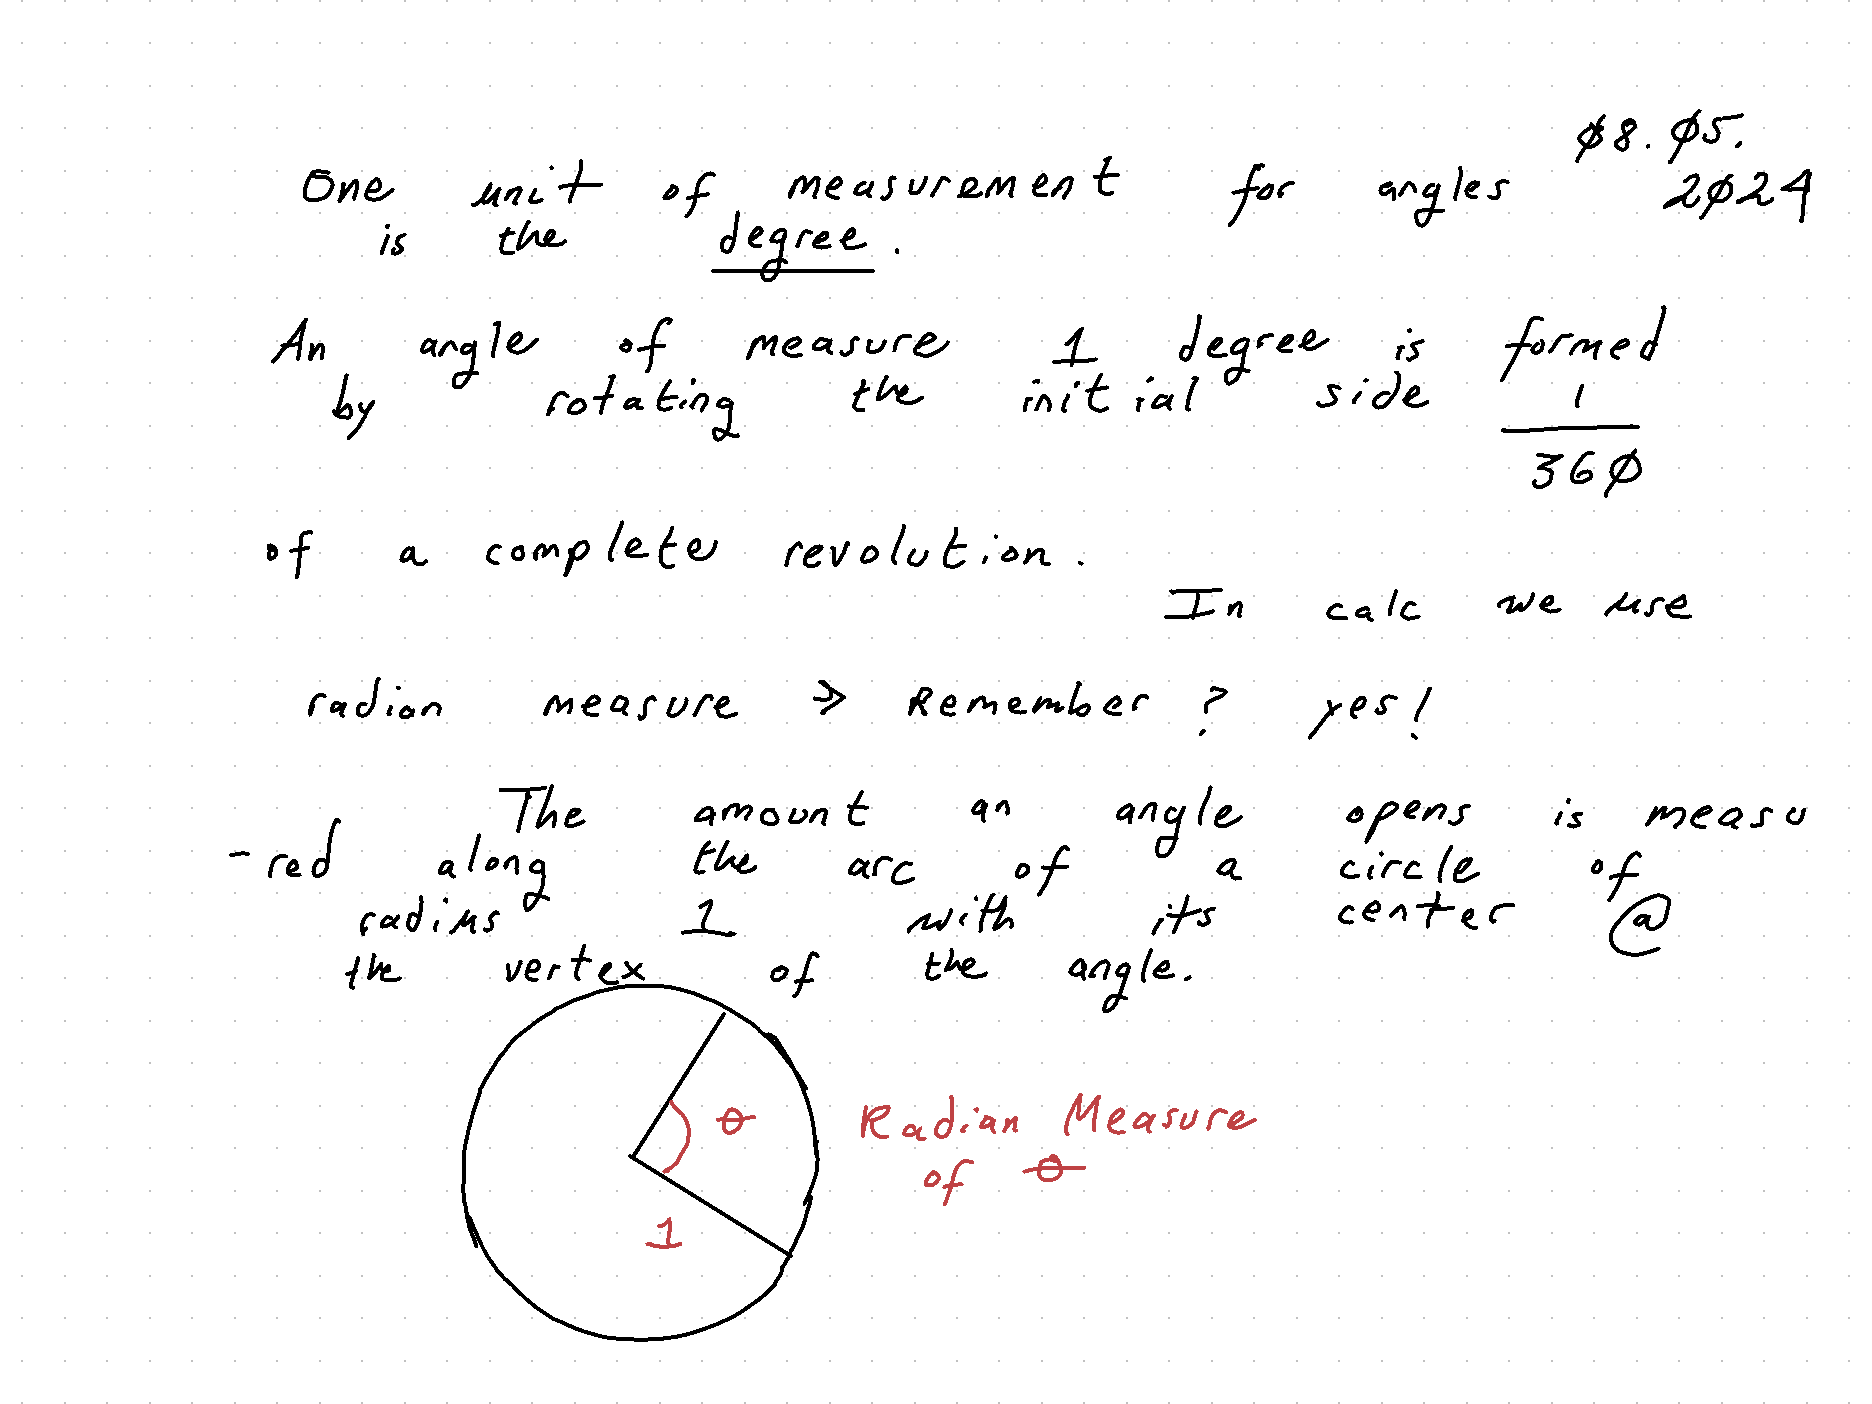 08.05.
One unit of measurement for angles 2024
is the degree.
An angle of measure 1 degree is formed
by rotating the initial side 1
360
of a complete revolution.
In calc we use
radian measure → Remember? yes!
The amount an angle opens is measu
-red along the arc of a circle of
radius 1 with its center @
the vertex of the angle.
θ
Radian Measure
of θ
1